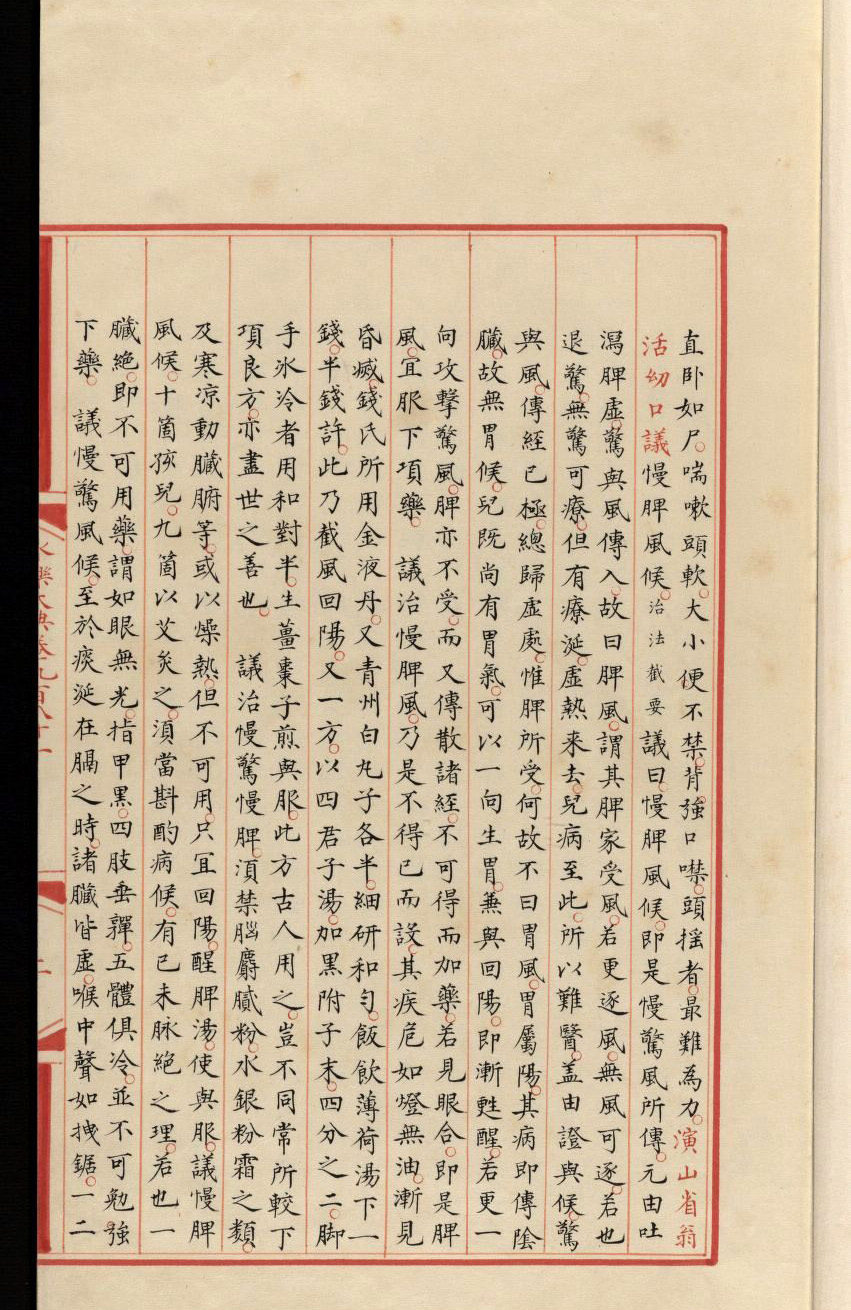 直卧如尸喘嗽頭軟大小便不禁背強口噤頭揺者最難為力演山省翁
活幼口議慢脾風候治法截要議曰慢脾風候即是慢驚風所傳元由吐
瀉脾虛驚與風傳入故曰脾風謂其脾家受風若更逐風無風可逐若也
退驚無驚可療但有療涎虛熱来去兒病至此所以難醫盖由證與候驚
與風傳經已極總歸虛處惟脾所受何故不曰胃風胃屬陽其病即傳陰
臟故無胃候兒既尚有胃氣可以一向生胃兼與回陽即漸甦醒若更一
向攻擊驚風脾亦不受而又傳散諸經不可得而加藥若見眼合即是脾
風宜服下項藥 議治慢脾風乃是不得已而設其疾危如燈無油漸見
昏㓕錢氏所用金液丹又青州白丸子各半細研和勻飯飲薄荷湯下一
錢半錢許此乃截風回陽又一方以四君子湯加黒附子末四分之二脚
手氷冷者用和對半生薑棗子煎與服此方古人用之豈不同常所較下
項良方亦盡世之善也 議治慢驚慢脾湏禁腦麝膩粉水銀粉霜之類
及寒凉動臟腑等或以燥熱但不可用只宜回陽醒脾湯使與服議慢脾
風候十箇孩兒九箇以艾灸之湏當斟酌病候有已未脉絶之理若也一
臟絶即不可用藥謂如眼無光指甲黒四肢垂嚲五體俱冷並不可勉強
下藥 議慢驚風候至於痰涎在膈之時諸臟皆虛喉中聲如拽鋸一二